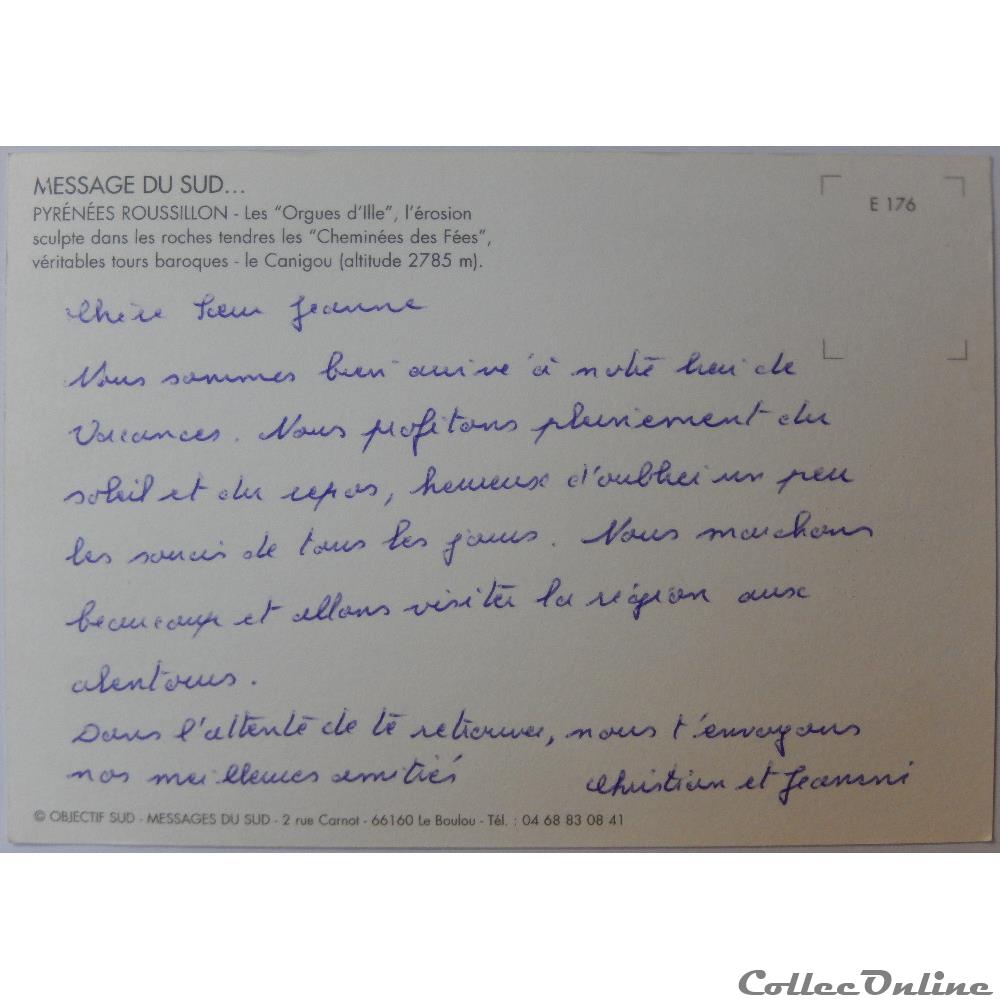 MESSAGE DU SUD...
E 176
PYRÉNÉES ROUSSILLON - Les "Orgues d'Ille", l'érosion
sculpte dans les roches tendres les "Cheminées des Fées",
véritables tours baroques - le Canigou (altitude 2785 m).
Chère Sœur Jeanne
Nous sommes bien arrivé à notre lieu de
Vacances. Nous profitons pleinement du
soleil et du repos, heureux d'oublier un peu
les soucis de tous les jours. Nous marchons
beaucoup et allons visiter la région aux
alentours.
Dans l'attente de te retrouver, nous t'envoyons
nos meilleures amitiés
Christian et Jeannie
© OBJECTIF SUD - MESSAGES DU SUD - 2 rue Carnot - 66160 Le Boulou - Tél. : 04 68 83 08 41
CollecOnline